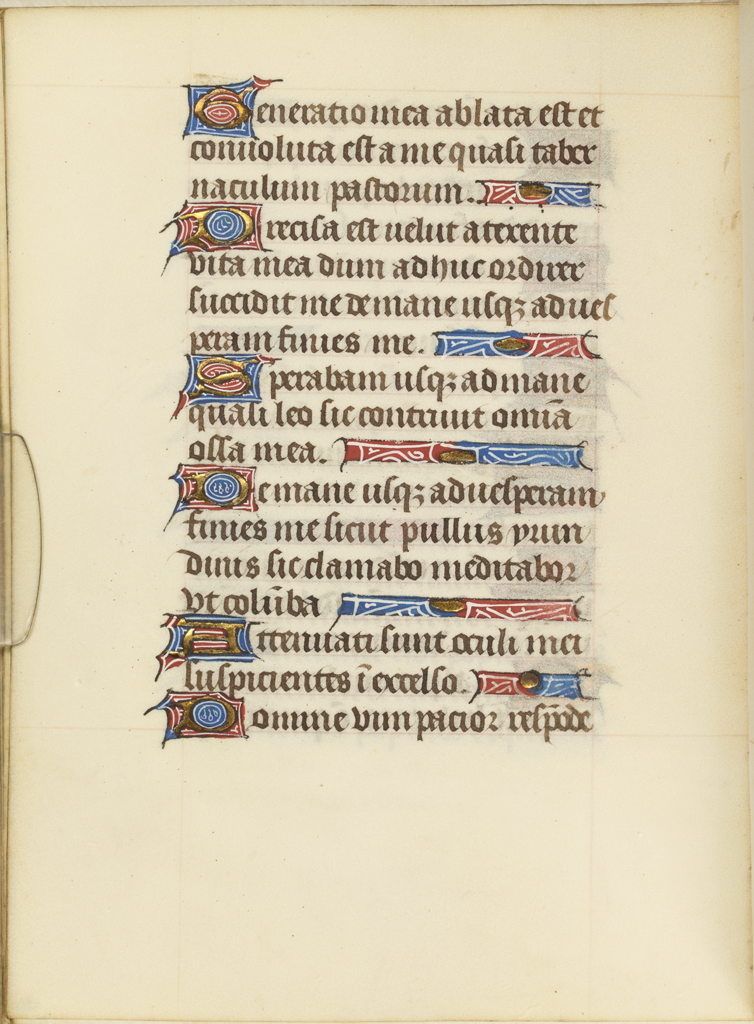 Generatio mea ablata est et
conuoluta est a me quasi taber
naculum pastorum.
Precisa est uelut a texente
vita mea dum adhuc ordirer
succidit me de mane usqꝫ ad ues
peram finies me.
Sperabam usqꝫ ad mane
quasi leo sic contriuit om̄ia
ossa mea.
De mane usqꝫ ad uesperam
finies me sicut pullus yrun
dinis sic clamabo meditabor
vt colūba
Attenuati sunt oculi mei
suspicientes ī excelso.
Domine vim pacior resp̄ode